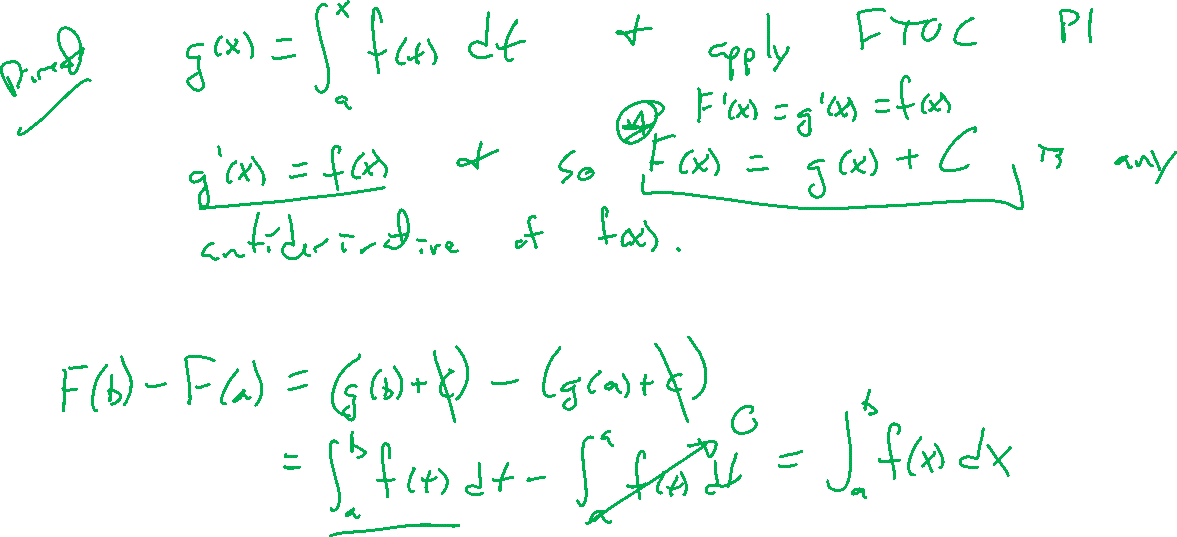 Direct g(x) = ∫_a^x f(t) dt & apply FTOC P1
⊛ F'(x) = g'(x) = f(x)
g'(x) = f(x) & so F(x) = g(x) + C is any
antiderivative of f(x).
F(b) - F(a) = (g(b) + C) - (g(a) + C)
= ∫_a^b f(t) dt - ∫_a^a f(t) dt 0 = ∫_a^b f(x) dx